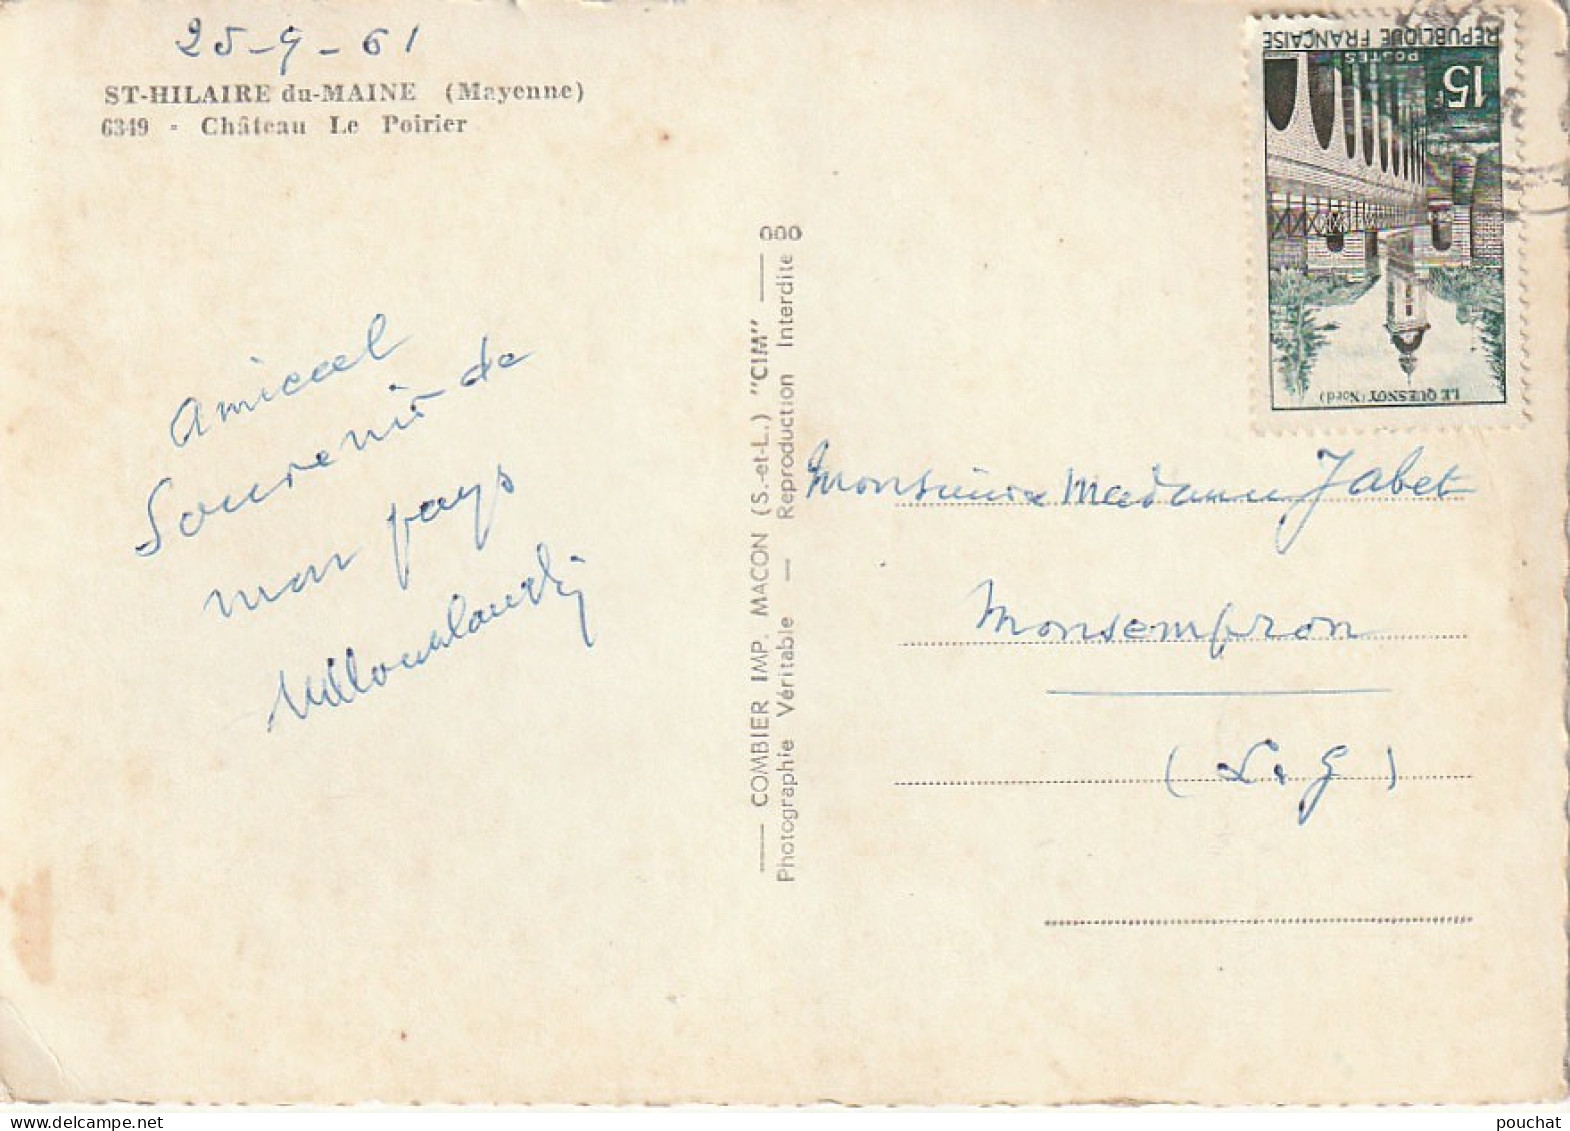 25-9-61
ST-HILAIRE du-MAINE (Mayenne)
6349 - Château Le Poirier
REPUBLIQUE FRANÇAISE
POSTES
15F
LE QUESNOY (Nord)
Amical
Souvenir de
mon pays
COMBIER IMP. MACON (S.-et-L.) "CIM"
Photographie Véritable — Reproduction Interdite
000
Monsieur Madame Jabet
Monsempron
(L. G)
pouchat